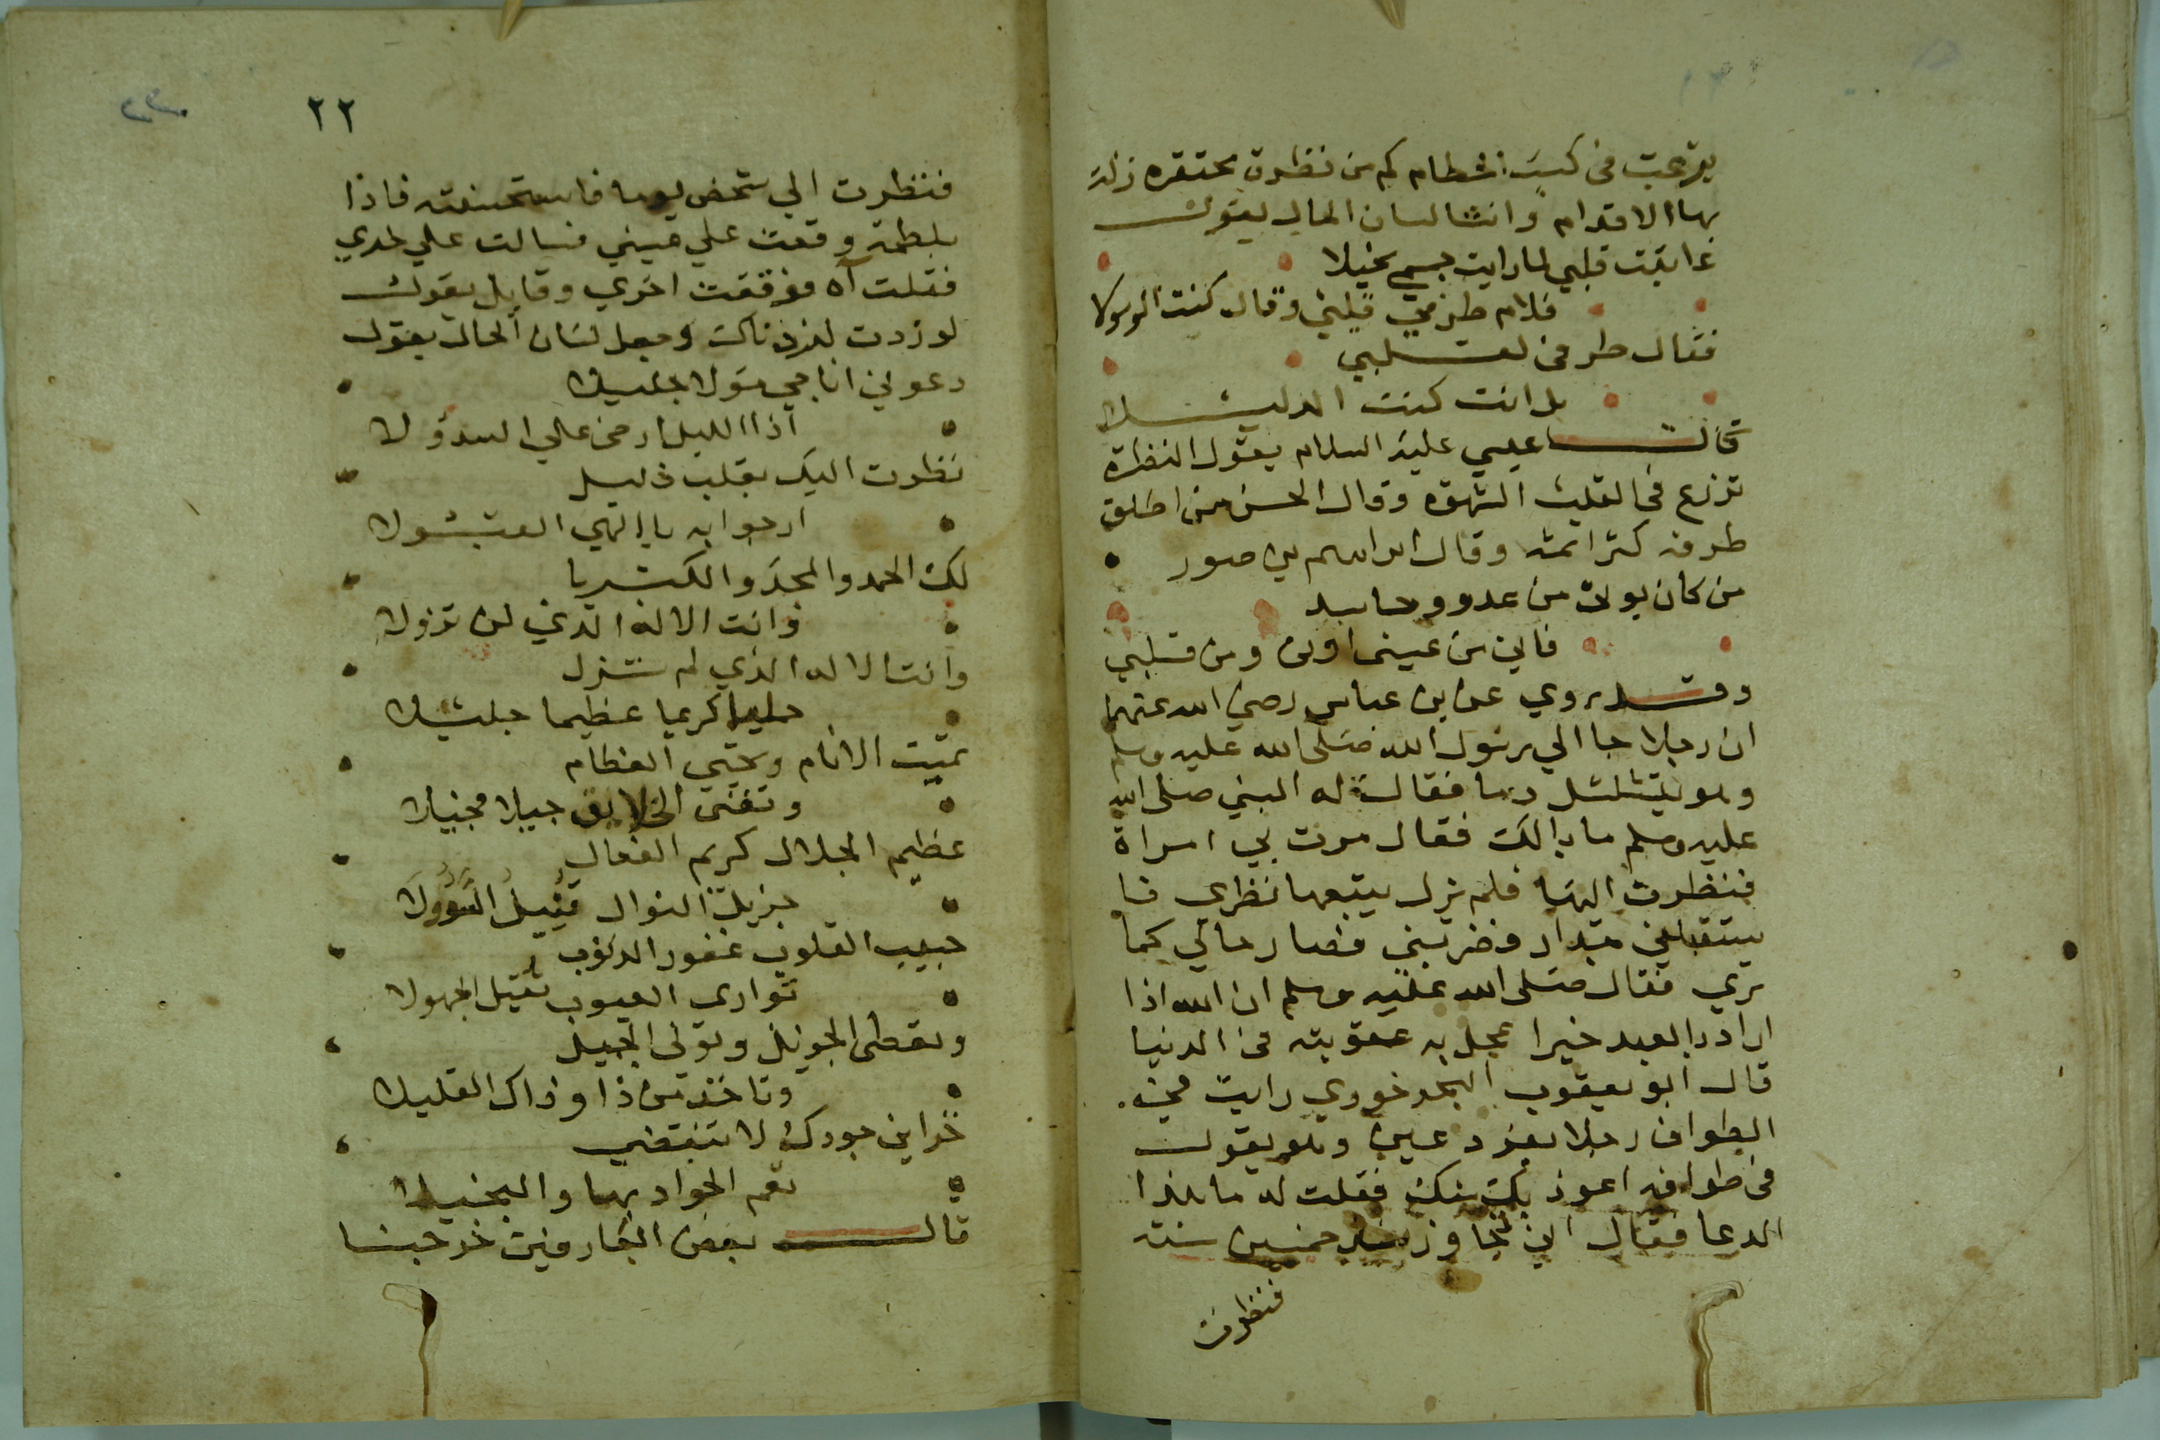 في كسب كم من نظرة محتقره زلت
بها الاقدام وانشا لسان الحال يقول
عاتبت قلبي لما رايت جسمي نحيلا
فلام طرفي قلبي وقال كنت الرسولا
فقال طرفي لقلبي
بل انت كنت الدليلا
قال عيسى عليه السلام يقول النظرة
تزرع في القلب الشهوه وقال الحسن من اطلق
طرفه كثر اثمه وقال ابراهيم بن صور
من كان يوتى من عدو وحاسد
فاني من عيني اوتى ومن قلبي
وقد روي عن بن عباس رضي الله عنهما
ان رجلا جا الي رسول الله صلى الله عليه وسلم
وهو يتشلشل دما فقال له النبي صلى الله
عليه وسلم ما بالك فقال مرت بي امراة
فنظرت اليها فلم يزل يتبعها نظري فا
ستقبلني جدار فضربني فصار حالي كما
تري فقال صلى الله عليه وسلم ان الله اذا
اراد بالعبد خيرا عجل به عقوبته في الدنيا
قال ابو يعقوب النهرجوري رايت في
الطواف رجلا بفرد عين وهو يقول
في طوافه اعوذ بك منك فقلت له ما هذا
الدعا فقال اني مجاور منذ خمسين سنة
فنظرت
٢٢
فنظرت الي شخص يوما فاستحسنته فاذا
بلطمة وقعت علي عيني فسالت علي خدي
فقلت آه فوقعت اخري وقايل يقول
لو زدت لزدناك وجعل لسان الحال يقول
دعوني اناجي مولا جليلا
اذا الليل ارخى علي السدولا
نظرت اليك بقلب ذليل
ارجوا به يا الهي القبولا
لك الحمد والمجد والكبريا
وانت الاله الذي لن تزولا
وانت الاله الذي لم تزل
حليما كريما عظيما جليلا
تميت الانام وتحيي العظام
وتفني الخلايق جيلا فجيلا
عظيم الجلال كريم الفعال
جزيل النوال تنيل السؤولا
حبيب القلوب غفور الذنوب
تواري العيوب تقيل الجهولا
وتعطي الجزيل وتولي الجميل
وتاخذ من ذا وذاك القليلا
خزاين جودك لا تنقضي
تعم الجواد بها والبخيلا
قال بعض العارفين خرجنا